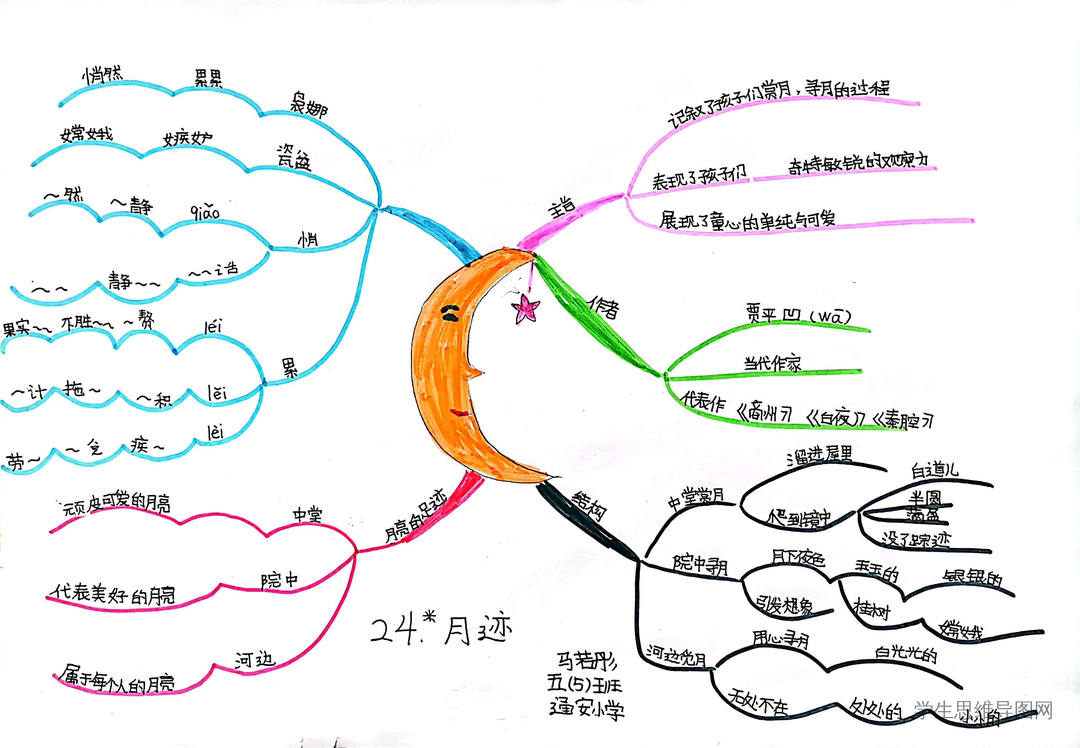 悄然
累累
袅娜
嫦娥
嫉妒
瓷盆
~然
~静
qiǎo
悄
~~
静~~
~~话
果实~~
不胜~~
~赘
léi
累
~计
拖~
~积
lěi
劳~
~兑
疾~
lèi
主旨
记叙了孩子们赏月,寻月的过程
表现了孩子们
奇特敏锐的观察力
展现了童心的单纯与可爱
作者
贾平凹(wā)
当代作家
代表作《商州》《白夜》《秦腔》
月亮的足迹
中堂
顽皮可爱的月亮
院中
代表美好的月亮
河边
属于每个人的月亮
结构
中堂赏月
溜进屋里
爬到镜中
白道儿
半圆
满盈
没了踪迹
院中寻月
月下夜色
玉玉的
银银的
引发想象
桂树
嫦娥
河边觅月
用心寻月
白光光的
无处不在
处处的
小小的
24.*月迹
马若彤
五(5)班
通安小学
学生思维导图网